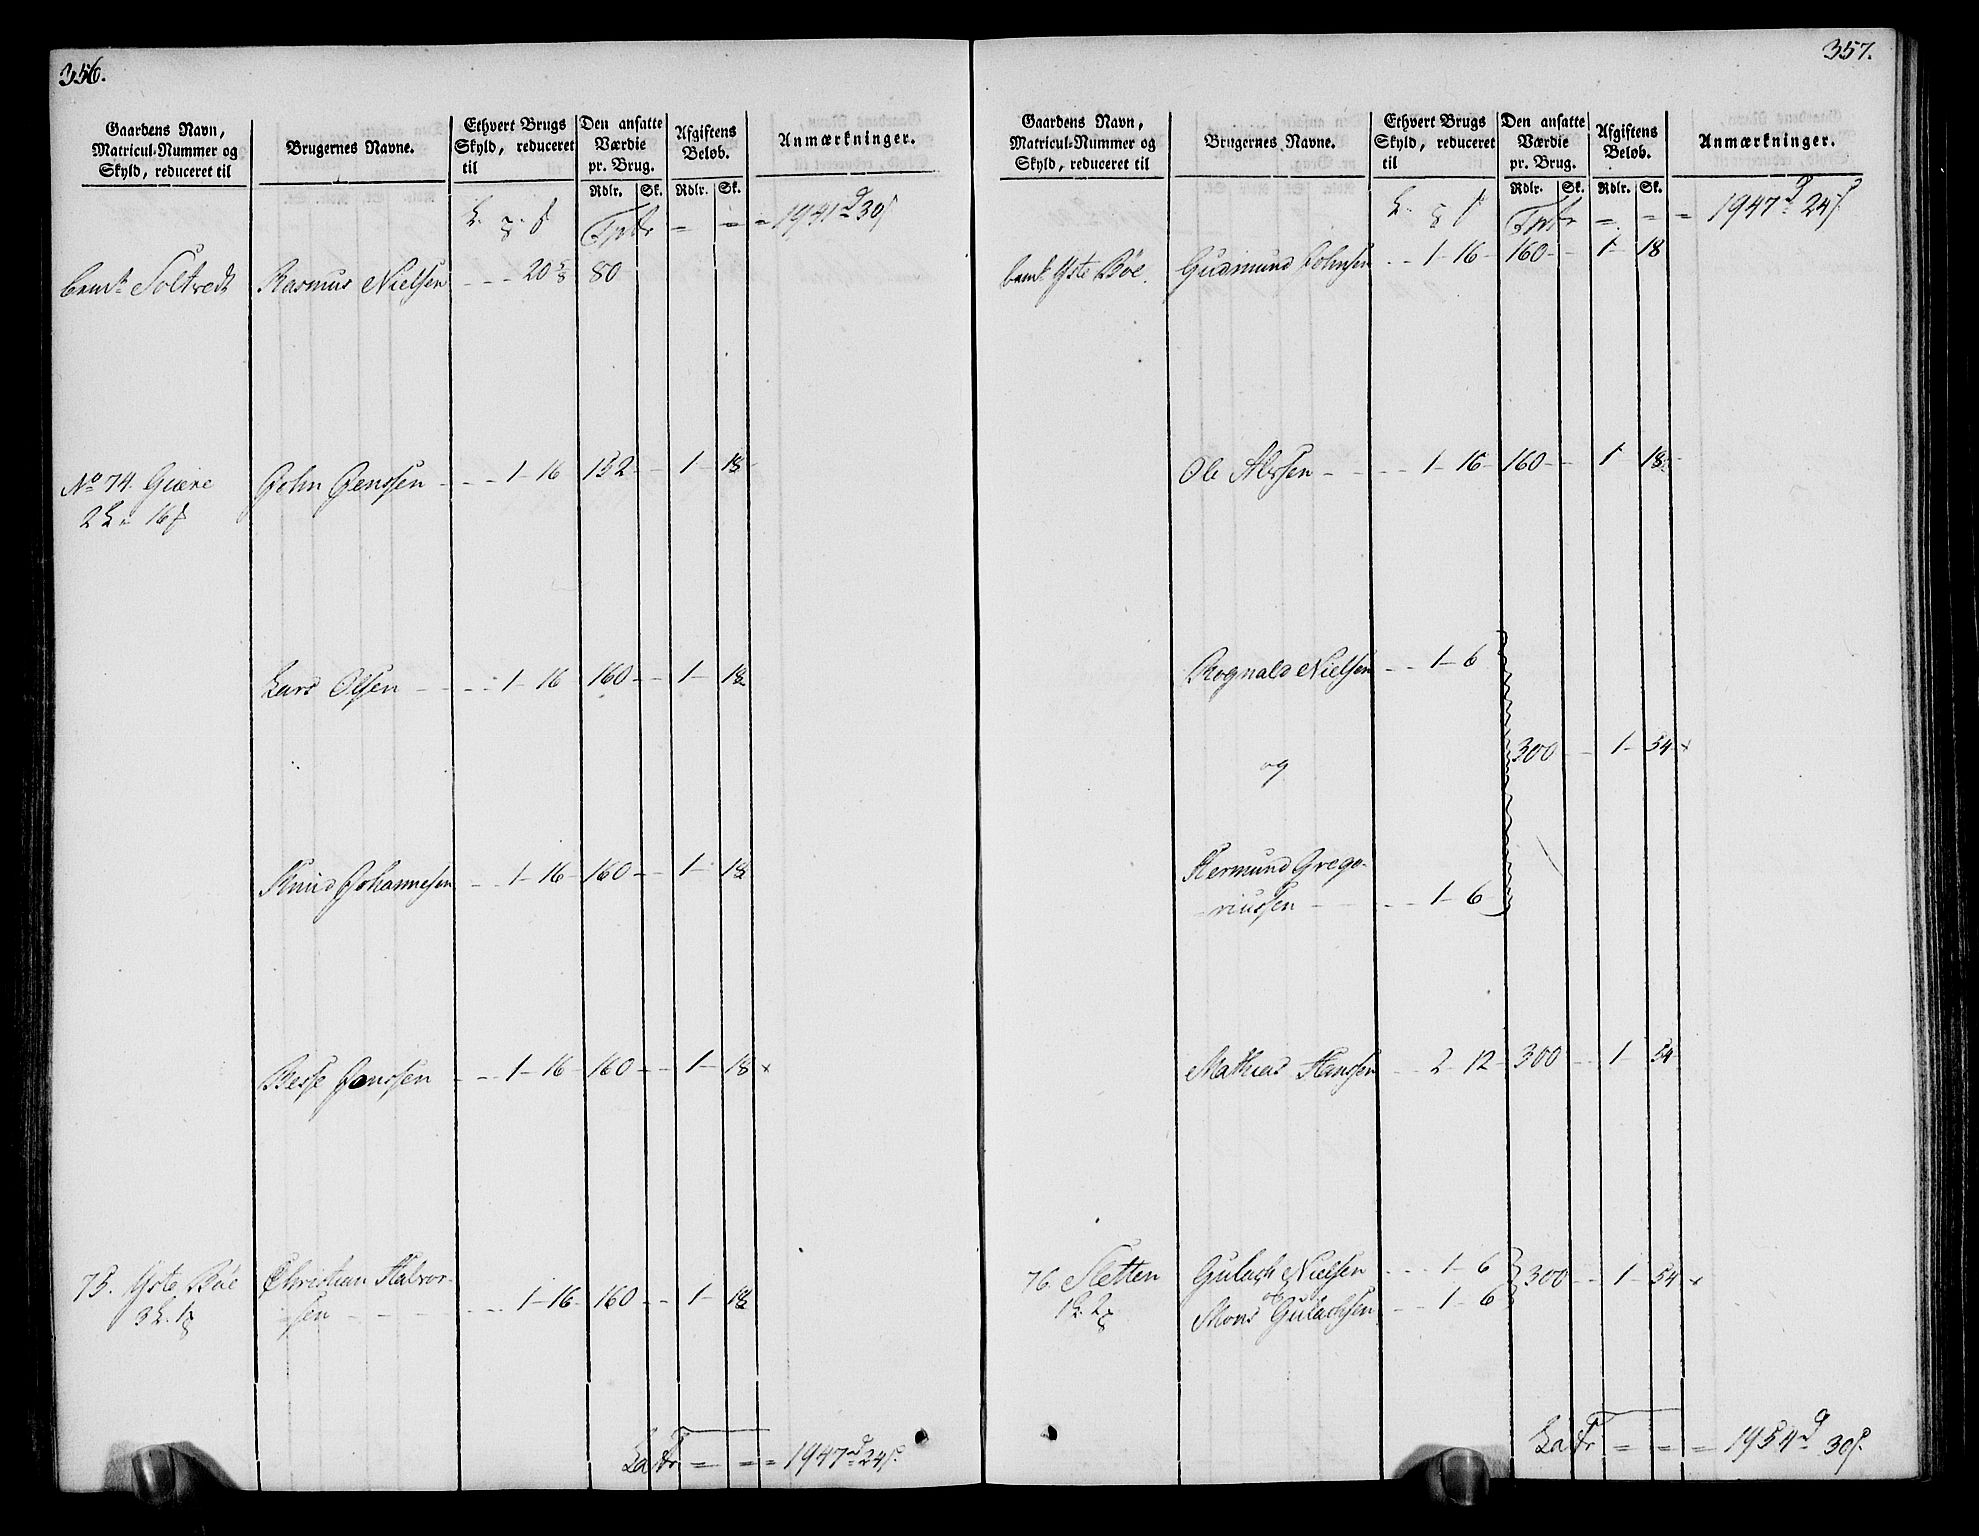 356.
Gaardens Navn, Matricul-Nummer og Skyld, reduceret til | Brugernes Navne. | Ethvert Brugs Skyld, reduceret til | Den ansatte Værdie pr. Brug. Rdlr. Sk. | Afgiftens Beløb. Rdlr. Sk. | Anmærkninger.
Trsfr = = = 1941 d 30 s
Rasmus Nielsen - - - 20 80
No 74. Giere John Jenssen - - - 1 - 16 152 - - 1 - 18
2 L - 16
Lars Olsen - - - 1 - 16 160 - - 1 - 18
Knud Johannesen - - - 1 - 16 160 - - 1 - 18
Besse Jonssen - - - 1 - 16 160 - - 1 - 18 x
75. Yste Bøe Christian Halvor-
3 L. 1 -sen - - - 1 - 16 160 - - 1 - 18
Latr = = = 1947 d 24 s
357.
Gaardens Navn, Matricul-Nummer og Skyld, reduceret til | Brugernes Navne. | Ethvert Brugs Skyld, reduceret til | Den ansatte Værdie pr. Brug. Rdlr. Sk. | Afgiftens Beløb. Rdlr. Sk. | Anmærkninger.
Trsfr = = = 1947 d 24 s
Yste Bøe. Gudmund Johnsen - - 1 - 16 160 - - 1 - 18
Ole - - - 1 - 16 160 - - 1 - 18
Rognald Nielsen - - 1 - 6
og 300 - - 1 - 54 x
Hermund Grego-
-riussen - - - 1 - 6
Mathias Hanssen - - 2 - 12 300 - - 1 - 54
76. Sletten Gulach Nielsen - - - 1 - 6 300 - - 1 - 54 x
og
Mons Gulachsen - - 1 - 6
Latr = = = 1954 d 30 s